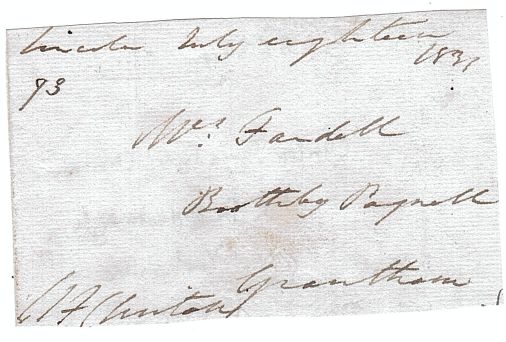 Lincoln July eighteen
1831
93
Mrs. Fardell
Boothby Pagnell
Grantham
Clinton